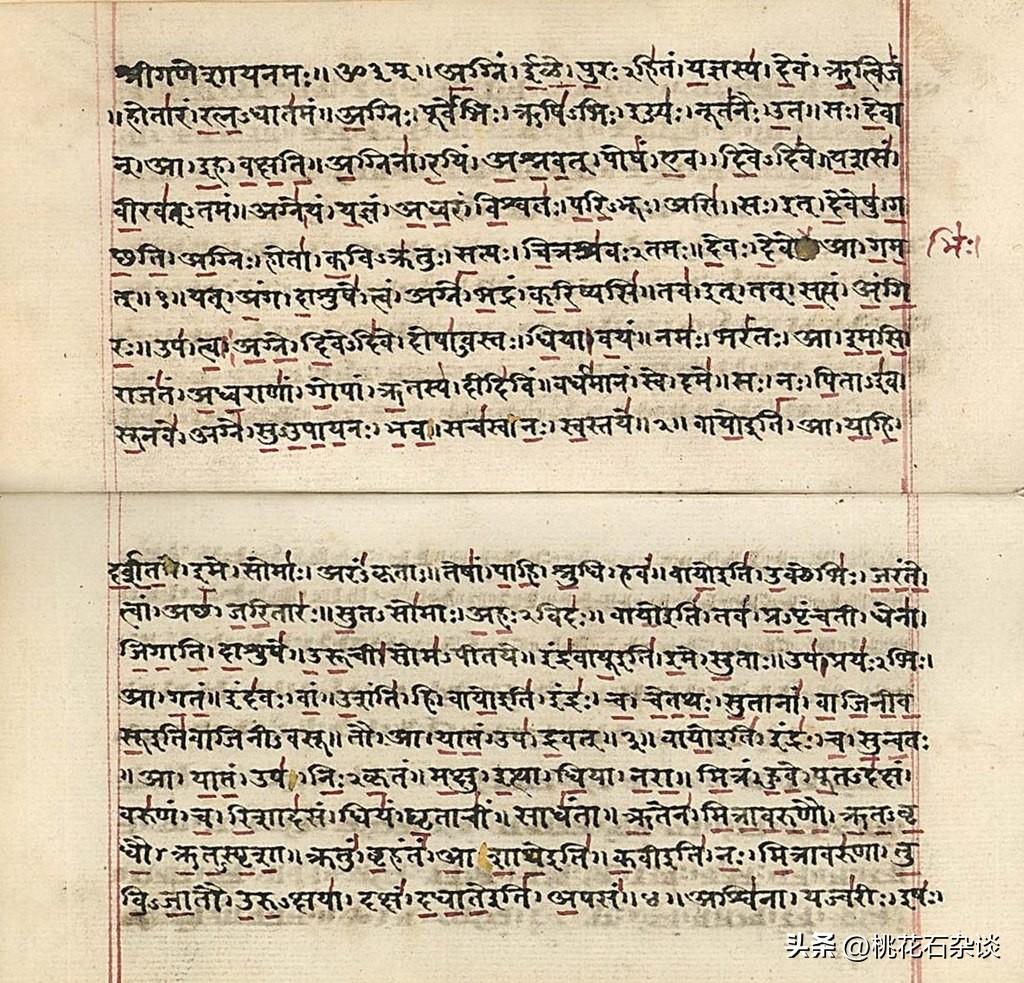 श्रीगणेशायनमः॥ॐ३म्॥अग्निं।ईळे।पुरःऽहितं।यज्ञस्य।देवं।ऋत्विजं
॥होतारं।रत्नऽधातमं॥अग्निः।पूर्वेभिः।ऋषिऽभिः।ईड्यः।नूतनैः।उत॥सः।देवा
न्।आ।इह।वक्षति॥अग्निना।रयिं।अश्नवत्।पोषं।एव।दिवेऽदिवे॥यशसं
वीरवत्ऽतमं॥अग्ने।यं।यज्ञं।अध्वरं।विश्वतः।परिऽभूः।असि॥सः।इत्।देवेषु।ग
छति।अग्निः।होता।कविऽक्रतुः।सत्यः।चित्रश्रवःऽतमः॥देवः।देवे आ।गम
भिः।
त्॥१॥यत्।अंग।दाशुषे।त्वं।अग्ने।भद्रं।करिष्यसि॥तव।इत्।तत्।सत्यं।अंगि
रः॥उप।त्वा।अग्ने।दिवेऽदिवे।दोषाऽवस्तः।धिया।वयं॥नमः।भरंतः।आ।इमसि
राजंतं।अध्वराणां।गोपां।ऋतस्य।दीदिविं॥वर्धमानं।स्वे।दमे॥सः।नः।पिताऽइव
सूनवे।अग्ने।सुऽउपायनः।भव॥सचस्व।नः।स्वस्तये॥२॥वायोइति।आ।याहि
दर्शत।इमे।सोमाः।अरंऽकृताः॥तेषां।पाहि।श्रुधि।हवं॥वायोइति।उक्थेभिः।जरंते
त्वां।अछ।जरितारः॥सुतऽसोमाः।अहःऽविदः॥वायोइति।तव।प्रऽपृंचती।धेना।
जिगाति।दाशुषे॥उरूची।सोमऽपीतये॥इंद्रवायूइति।इमे।सुताः॥उप।प्रयःऽभिः।
आ।गतं॥इंदवः।वां।उशंति।हि॥वायोइति।इंद्रः।च।चेतथः।सुतानां।वाजिनीव
सूइतिवाजिनीऽवसू॥तौ।आ।यातं।उप।द्रवत्॥३॥वायोइति।इंद्रः।च।सुन्वतः
॥आ।यातं।उप।निःऽकृतं॥मक्षु।इत्था।धिया।नरा॥मित्रं।हुवे।पूतऽदक्षं।
वरुणं।च।रिशादसं॥धियं।घृताचीं।साधंता॥ऋतेन।मित्रावरुणौ।ऋतऽवृ
धौ।ऋतऽस्पृशा॥क्रतुं।बृहंतं।आशाथेइति॥कवीइति।नः।मित्रावरुणा।तु
विऽजातौ।उरुऽक्षया॥दक्षं।दधातेइति।अपसं॥४॥अश्विना।यज्वरीः।इषः।
头条 @桃花石杂谈